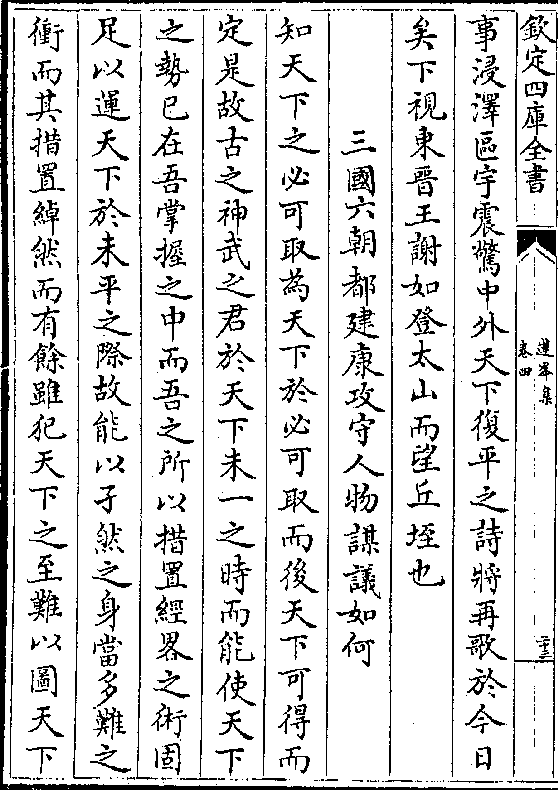 欽定四庫全書
蓮峯集
卷四
二十三
事浸澤區宇震驚中外天下復平之詩將再歌於今日
矣下視東晉王謝如登太山而望丘垤也
三國六朝都建康攻守人物謀議如何
知天下之必可取為天下於必可取而後天下可得而
定是故古之神武之君於天下未一之時而能使天下
之勢已在吾掌握之中而吾之所以措置經畧之術固
足以運天下於未平之際故能以孑然之身當多難之
衝而其措置綽然而有餘雖犯天下之至難以圖天下